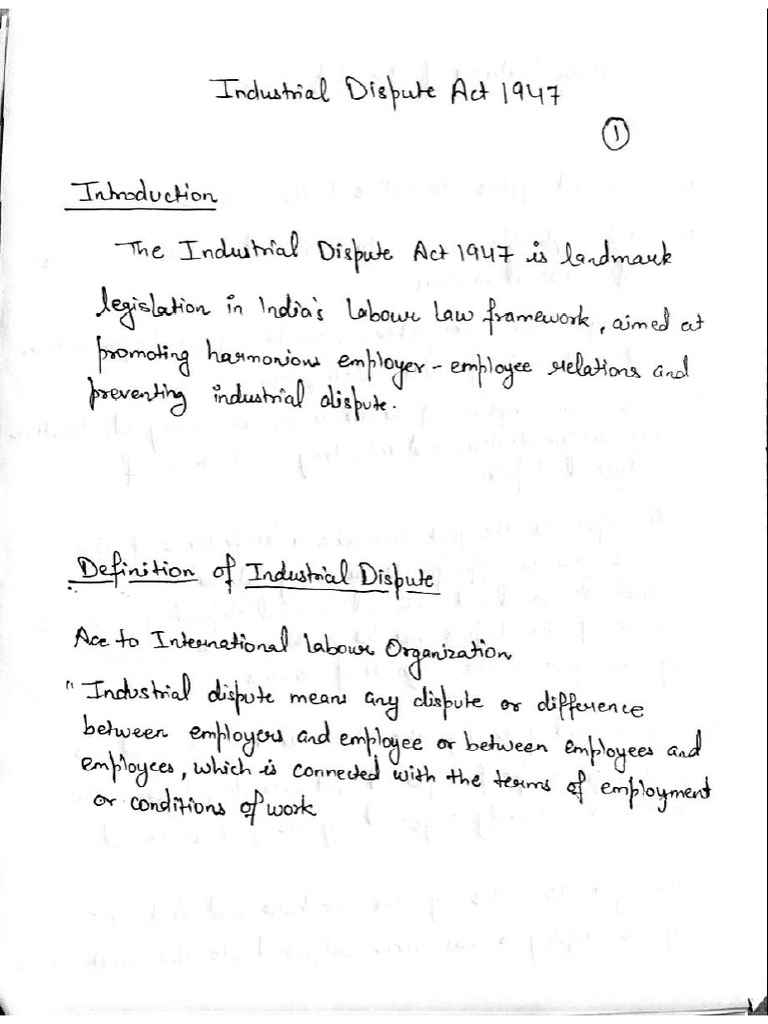 Industrial Dispute Act 1947
1
Introduction
The Industrial Dispute Act 1947 is landmark
legislation in India's labour law framework, aimed at
promoting harmonious employer - employee relations and
preventing industrial dispute.
Definition of Industrial Dispute
Acc to International labour Organization
" Industrial dispute means any dispute or difference
between employers and employee or between employees and
employees, which is connected with the terms of employment
or conditions of work